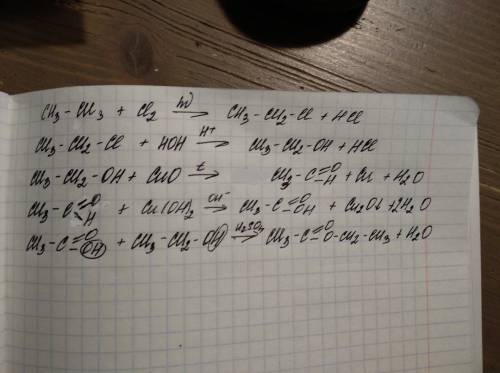 CH3-CH3 + Cl2 hν→ CH3-CH2-Cl + HCl
CH3-CH2-Cl + HOH H+→ CH3-CH2-OH + HCl
CH3-CH2-OH + CuO t→ CH3-C=O-H + Cu + H2O
CH3-C=O-H + Cu(OH)2 OH-→ CH3-C=O-OH + Cu2O↓ + 2H2O
CH3-C=O-OH + CH3-CH2-OH H2SO4→ CH3-C=O-O-CH2-CH3 + H2O